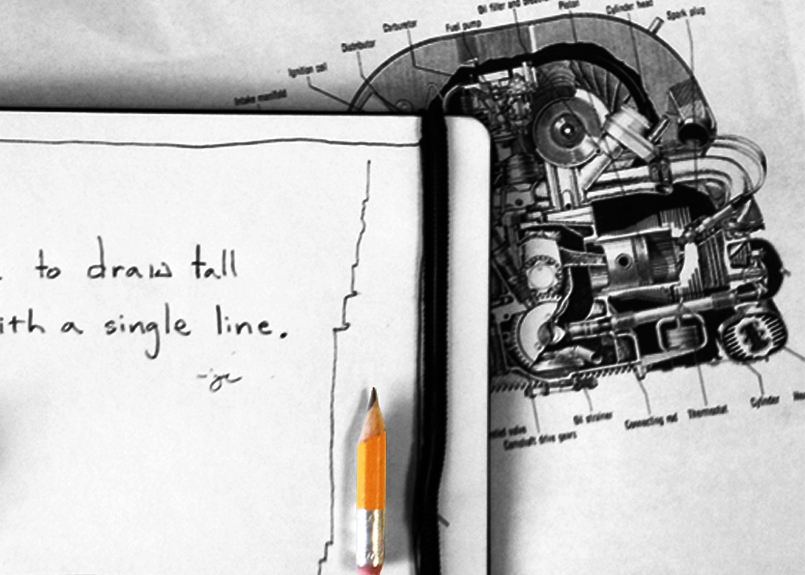 to draw tall
ith a single line.
Intake manifold
Ignition coil
Distributor
Carburetor
Fuel pump
Oil filler and
Piston
Cylinder head
Spark plug
relief valve
Camshaft drive gears
Oil strainer
Connecting rod
Thermostat
Cylinder